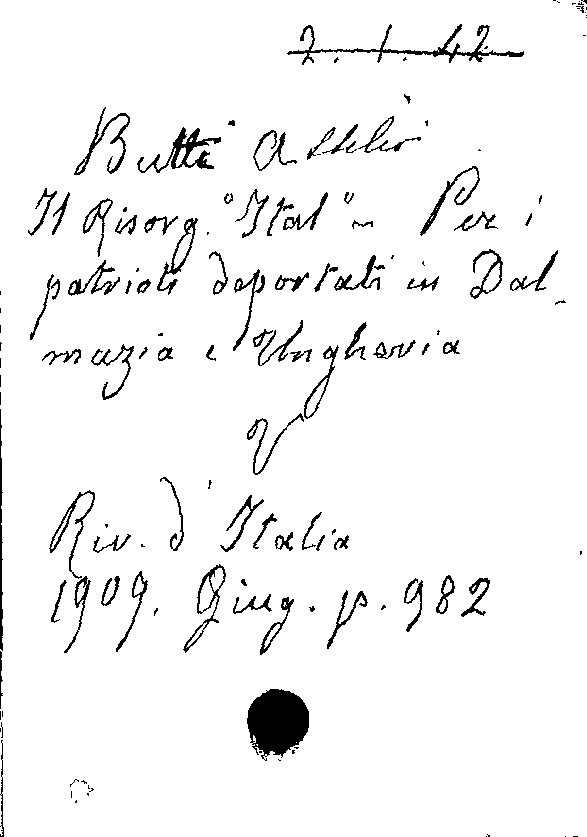 2. 1. 42
Butti Attilio
Il Risorg. "Ital" - Per i
patrioti deportati in Dal-
mazia e Ungheria
V
Riv. d'Italia
1909. Giug. p. 982